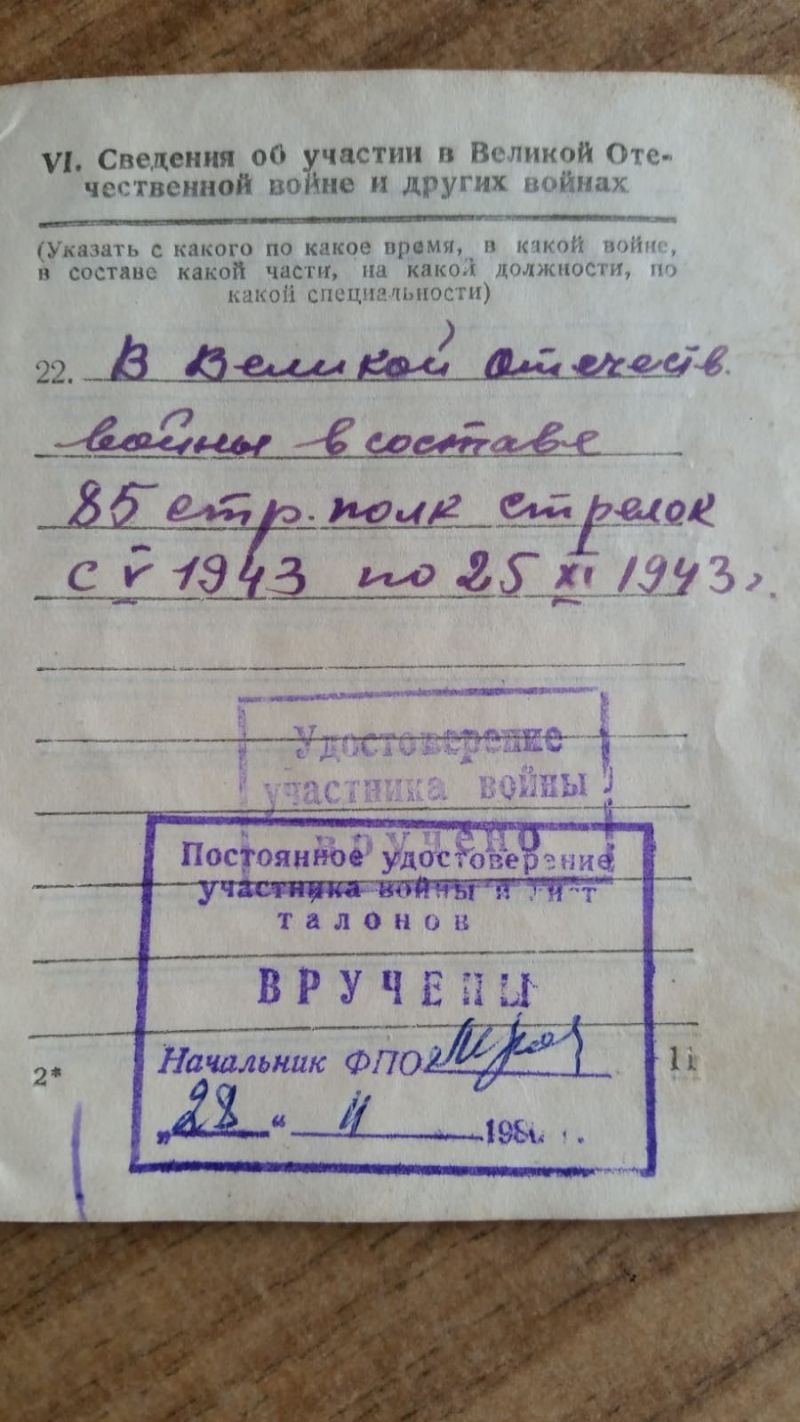 VI. Сведения об участии в Великой Оте-
чественной войне и других войнах
(Указать с какого по какое время, в какой войне,
в составе какой части, на какой должности, по
какой специальности)
22. В Великой Отечеств.
войны в составе
85 стр. полк стрелок
с V 1943 по 25 XI 1943 г.
Удостоверение
участника войны
вручено
Постоянное удостоверение
участника войны и лист
талонов
ВРУЧЕНЫ
Начальник ФПО
„28“ 11 1980 г.
2*
11